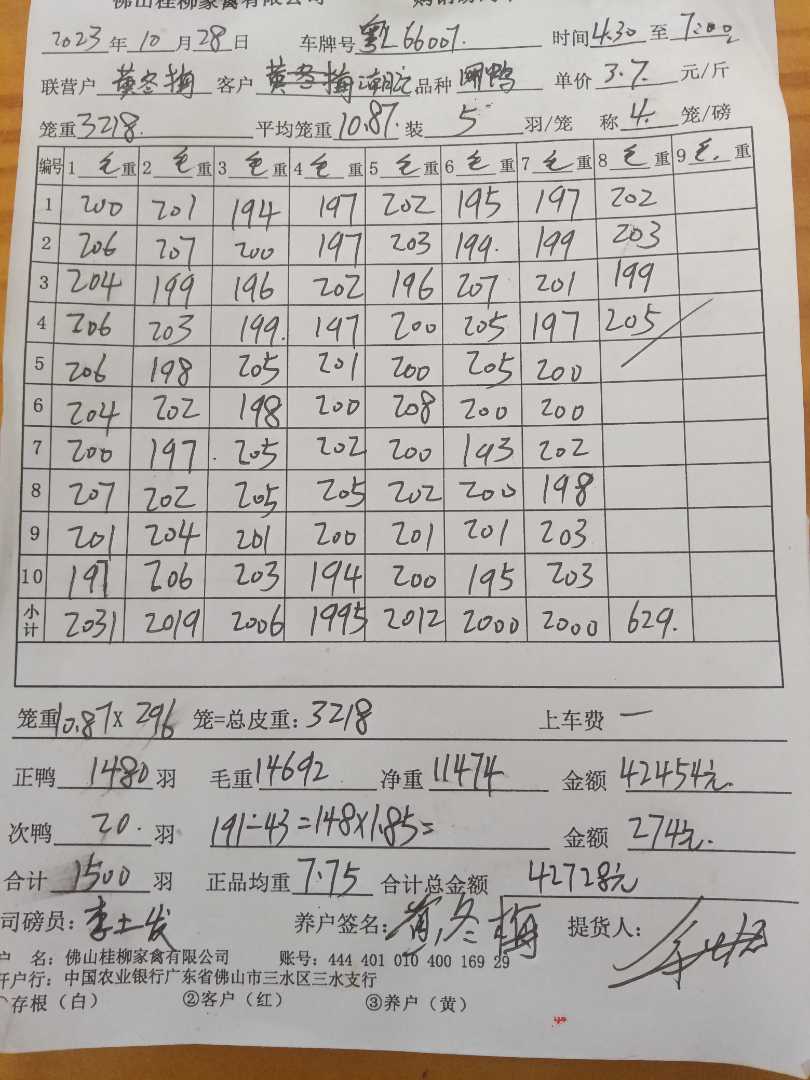 佛山桂柳家禽有限公司
2023年10月28日 车牌号 66007. 时间4.30至7:00
联营户 黄冬梅 客户 黄冬梅 品种 鸭 单价 3.7. 元/斤
笼重3218. 平均笼重10.87. 装 5 羽/笼 称 4. 笼/磅
编号 1 毛重 2 毛重 3 毛重 4 毛重 5 毛重 6 毛重 7 毛重 8 毛重 9 毛.重
1 200 201 194 197 202 195 197 202
2 206 207 200 197 203 199. 199 203
3 204 199 196 202 196 207 201 199
4 206 203 199. 197 200 205 197 205
5 206 198 205 201 200 205 200
6 204 202 198 200 208 200 200
7 200 197 205 202 200 193 202
8 207 202 205 205 202 200 198
9 201 204 201 200 201 201 203
10 197 206 203 194 200 195 203
小计 2031 2019 2006 1995 2012 2000 2000 629.
笼重10.87X 296 笼=总皮重:3218 上车费 一
正鸭 1480 羽 毛重14692 净重 11474 金额 42454元.
次鸭 20. 羽 191÷43=148×1.85= 金额 274元.
合计 1500 羽 正品均重 7.75 合计总金额 42728元
司磅员: 养户签名: 黄冬梅 提货人:
户 名: 佛山桂柳家禽有限公司 账号: 444 401 010 400 169 29
开户行: 中国农业银行广东省佛山市三水区三水支行
存根(白) ②客户(红) ③养户(黄)